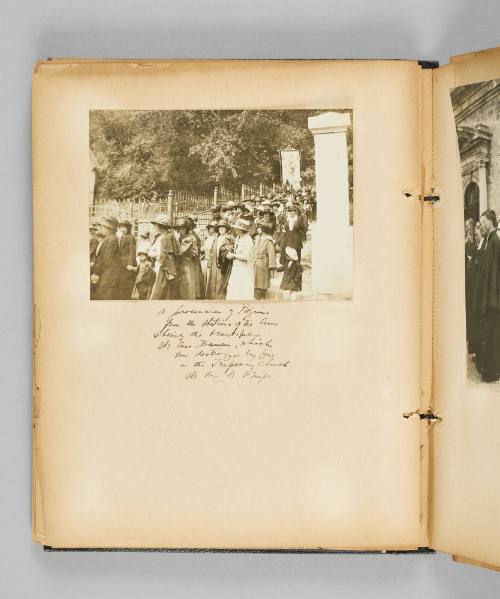 A procession of Pilgrims
from the Stations of the Cross
showing the beautiful
St. Anne Banner, which
was destroyed by fire
in the Temporary Church